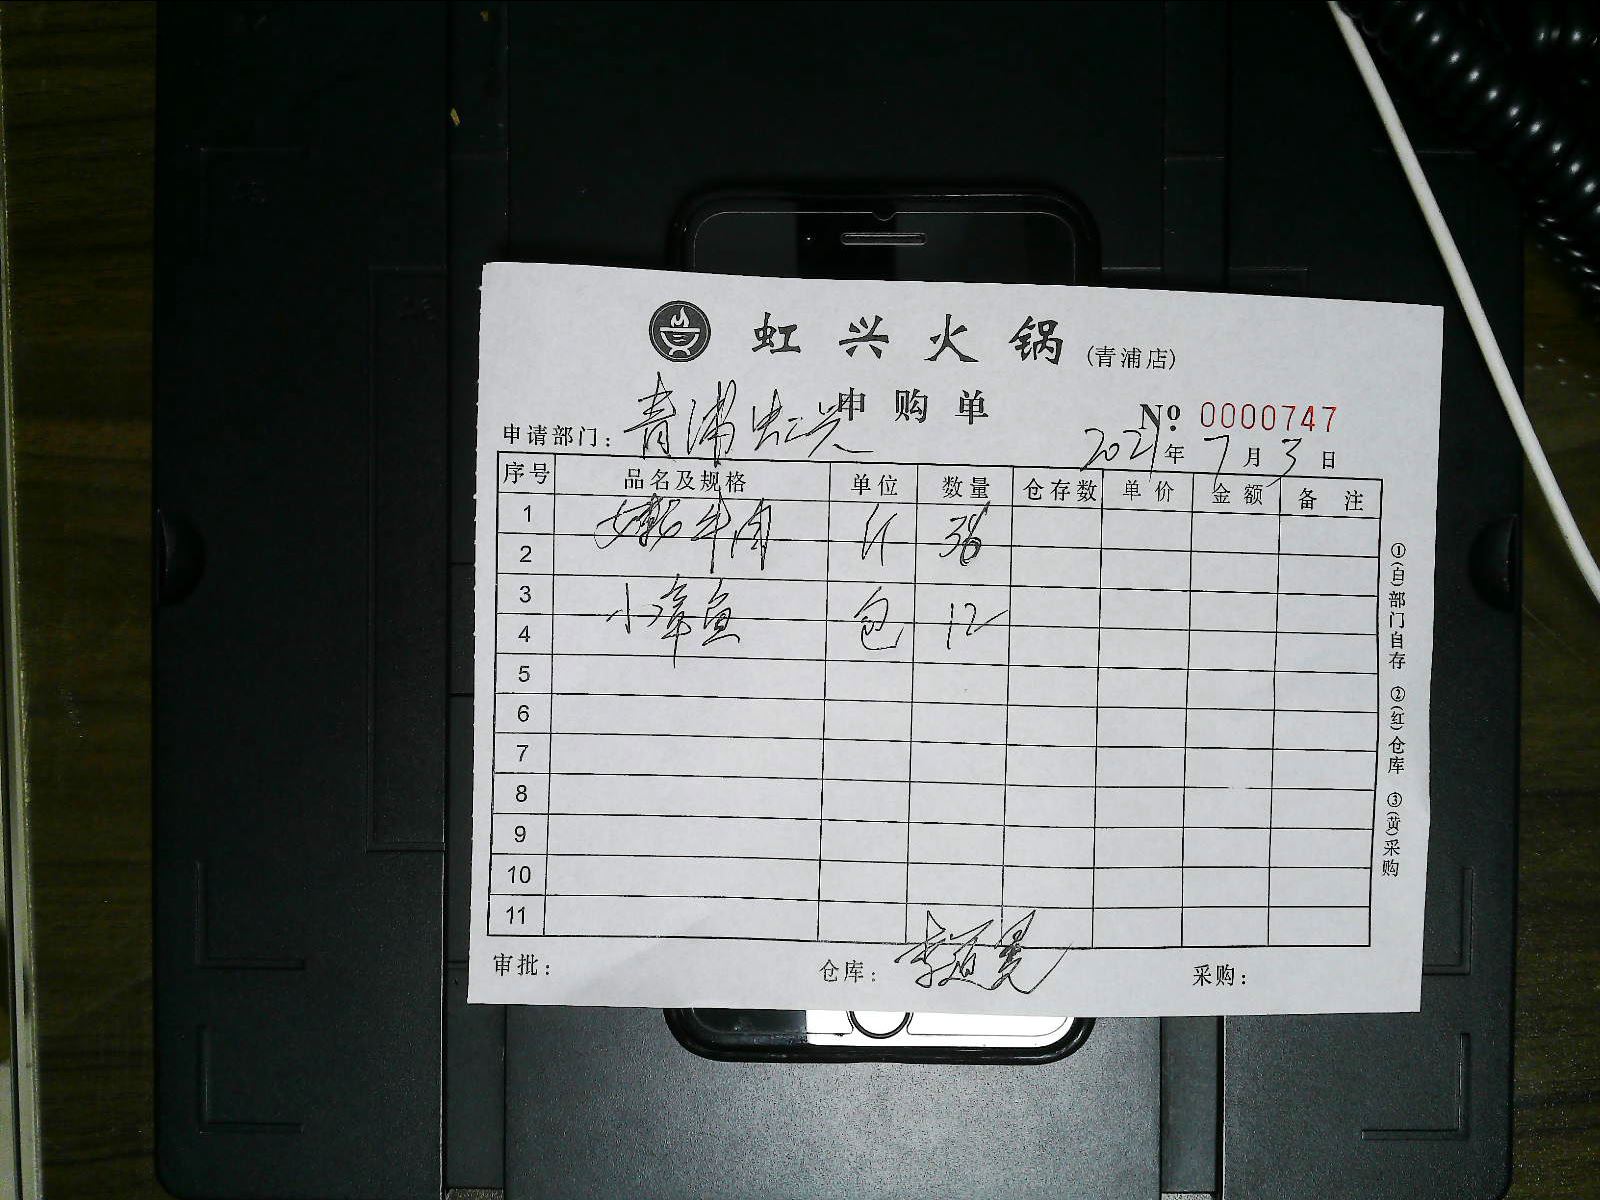 虹兴火锅(青浦店)
申购单
№ 0000747
申请部门：青浦虹兴
2021年7月3日
序号 品名及规格 单位 数量 仓存数 单价 金额 备注
1
嫩牛肉 斤 36
2
3
小章鱼 包 12
4
5
6
7
8
9
10
11
审批： 仓库： 采购：
①(白)部门自存 ②(红)仓库 ③(黄)采购